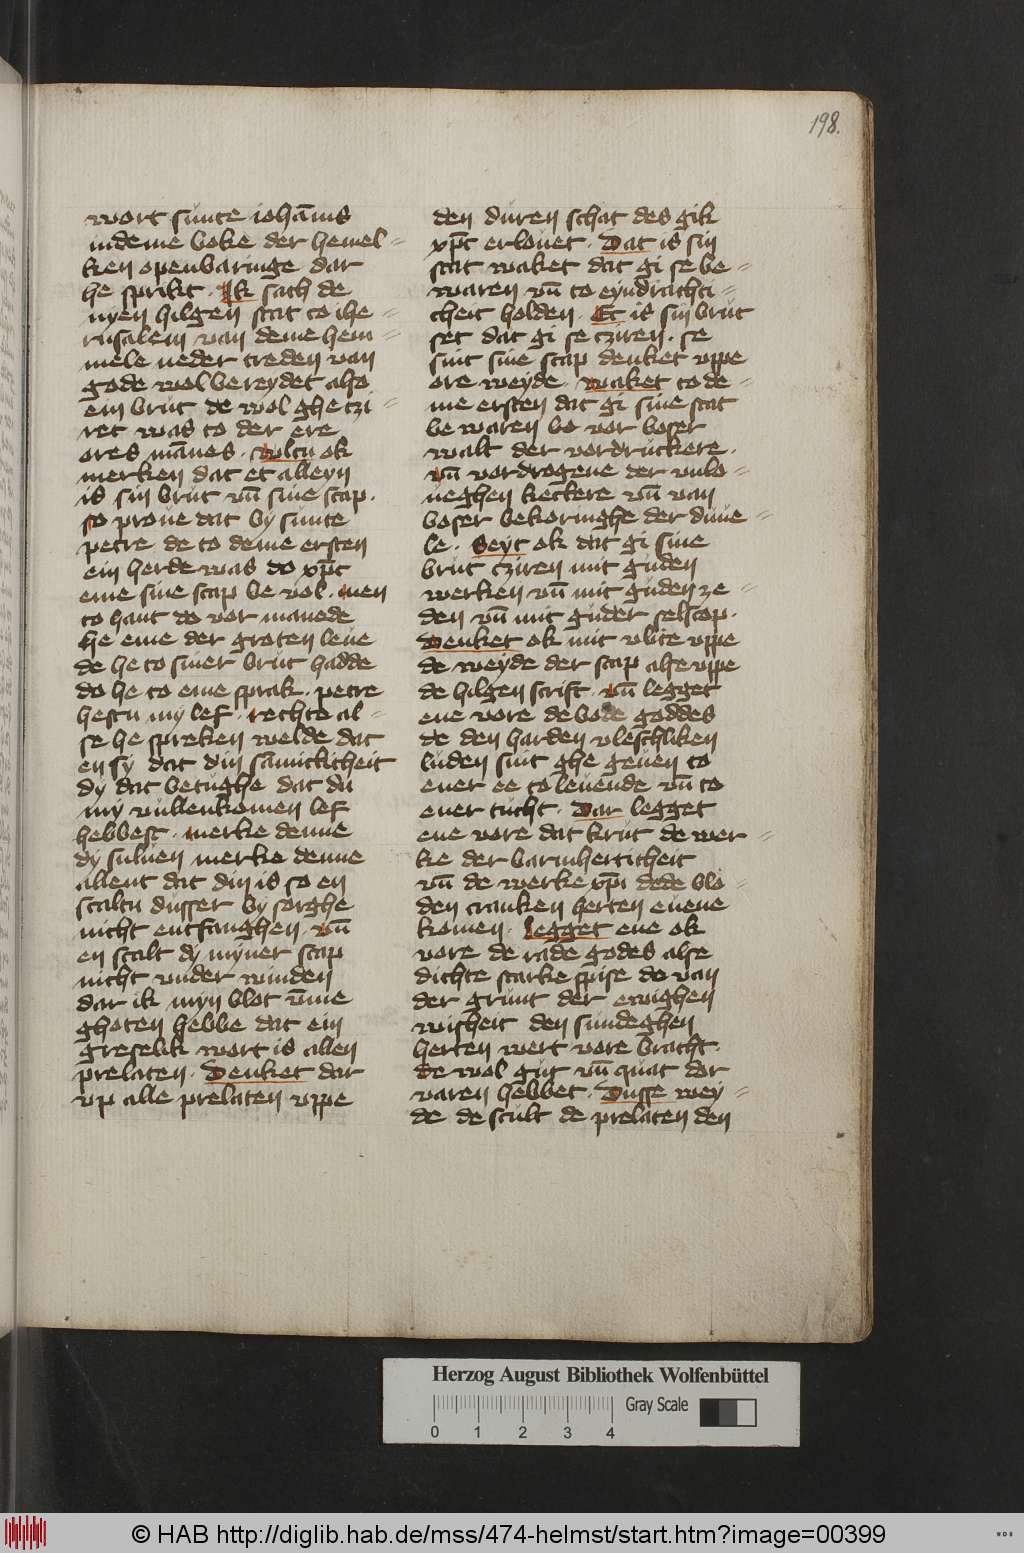 198.
wort sunte iohānis
indeme boke der hemel-
ken openbaringe dar
he sprikt. Ik sach de
nyen hilgen stat to ihe-
rusalem van deme hem-
mele neder treden van
gode wol bereydet also
ein brut de wol ghe tzi-
ret was to der ere
ores mānes. woltu ok
merken dat et alleyn
is sin brut vn̄ sine scap.
so proue dat by sunte
petre de to deme ersten
ein herde was do xp̄c
eme sine scap be vol. wen
to hant do vor manede
he eme der groten leue
de he to siner brut hadde
do he to eme sprak. petre
hestu my lef. rechte al-
se he spreken welde dat
en sy dat din samickicheit
dy dat betughe dat du
my vullenkomen lef
hebbest. merke denne
dy suluen merke denne
allent dat din is so en
scaltu dusser by sorghe
nicht entfanghen. vn̄
en scalt dy myner scap
nicht vnder winden
dar ik myn blot v̄me
ghoten hebbe dat ein
greselik wort is allen
prelaten. Denket dar
vp alle prelaten vppe
den duren schat des gik
xp̄c erlouet. Dat is sin
stat waket dat gi se be-
waren vn̄ to eyndrachti-
cheit holden. Et is sin brut
set dat gi se tziren. se
sint sine scap denket vppe
ore weyde. waket to de-
me ersten dat gi sine stat
be waren bo vor boser
walt der vordruckere.
vn̄ vordrogene der vnlo-
ueghen keckere vn̄ van
boser bekoringhe der duue-
le. Seyt ok dat gi sine
brut tziren mit guden
werken vn̄ mit guden ze-
den vn̄ mit guder selscop.
Denket ok mit vlite vppe
de weyde der scap alse vppe
de hilgen scrift. vn̄ legget
ene vore de bode goddes
de den harden vleschliken
luden sint ghe geuen to
ener ee to leuende vn̄ to
ener tucht. Dar legget
ene vore dat krut de wer-
ke der barmherticheit
vn̄ de werke xp̄i dede blo-
den cranken herten euene
komen. Legget ene ok
vore de rade godes alse
dichte starke spise de van
der grunt der ewighen
wisheit den sundeghen
herten wert vore bracht.
de wol gut vn̄ quat dor
varen hebbet. Dusse wey-
de de scult de prelaten den
Herzog August Bibliothek Wolfenbüttel
Gray Scale
0 1 2 3 4
© HAB http://diglib.hab.de/mss/474-helmst/start.htm?image=00399
WDB